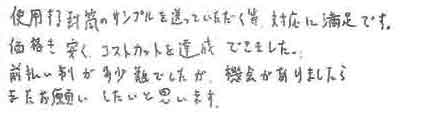 使用する封筒のサンプルを送っていただく等、対応に満足です。
価格も安く、コストカットを達成できました。
前払い制が多少難でしたが、機会がありましたら
またお願いしたいと思います。